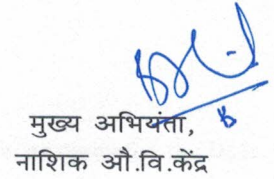 मुख्य अभियंता,
नाशिक औ.वि.केंद्र